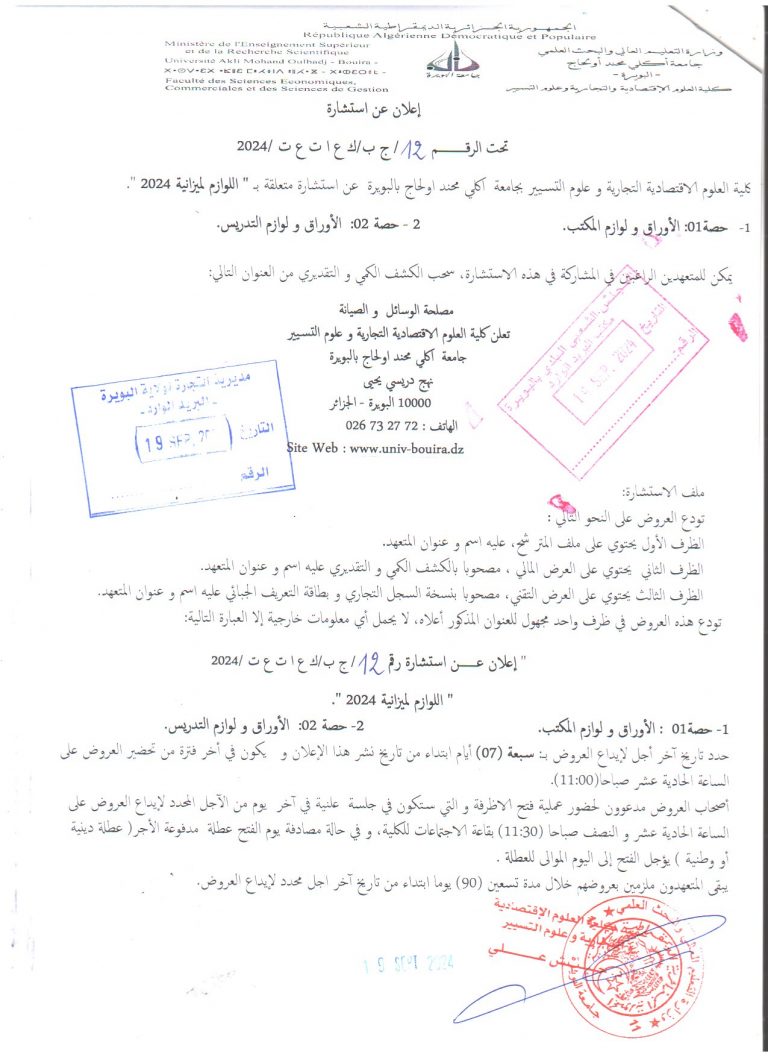 الجمهورية الجزائرية الديمقراطية الشعبية
République Algérienne Démocratique et Populaire
Ministère de l'Enseignement Supérieur
et de la Recherche Scientifique
Université Akli Mohand Oulhadj - Bouira -
Faculté des Sciences Economiques,
Commerciales et des Sciences de Gestion
جامعة البويرة
وزارة التعليم العالي والبحث العلمي
جامعة أكلي محند أولحاج
- البويرة -
كلية العلوم الإقتصادية والتجارية وعلوم التسيير
إعلان عن استشارة
تحت الرقم 12/ج ب/ك ع ا ت ع ت /2024
كلية العلوم الاقتصادية التجارية و علوم التسيير بجامعة اكلي محند اولحاج بالبويرة عن استشارة متعلقة بـ " اللوازم لميزانية 2024 ".
1- حصة01: الأوراق و لوازم المكتب. 2 - حصة 02: الأوراق و لوازم التدريس.
يمكن للمتعهدين الراغبين في المشاركة في هذه الاستشارة، سحب الكشف الكمي و التقديري من العنوان التالي:
مصلحة الوسائل و الصيانة
تعلن كلية العلوم الاقتصادية التجارية و علوم التسيير
جامعة اكلي محند اولحاج بالبويرة
نهج دريسي يحيى
10000 البويرة - الجزائر
الهاتف : 72 27 73 026
Site Web : www.univ-bouira.dz
المجلس الشعبي البلدي بالبويرة
مكتب البريد الوارد
التاريخ
19 SEP. 2024
الرقم
مديرية التجارة لولاية البويرة
- البريد الوارد -
التاريخ
19 SEP. 20
الرقم
ملف الاستشارة:
تودع العروض على النحو التالي :
الظرف الأول يحتوي على ملف المترشح، عليه اسم و عنوان المتعهد.
الظرف الثاني يحتوي على العرض المالي ، مصحوبا بالكشف الكمي و التقديري عليه اسم و عنوان المتعهد.
الظرف الثالث يحتوي على العرض التقني، مصحوبا بنسخة السجل التجاري و بطاقة التعريف الجبائي عليه اسم و عنوان المتعهد.
تودع هذه العروض في ظرف واحد مجهول للعنوان المذكور أعلاه، لا يحمل أي معلومات خارجية إلا العبارة التالية:
" إعلان عن استشارة رقم 12/ج ب/ك ع ا ت ع ت /2024
" اللوازم لميزانية 2024 ".
1- حصة01 : الأوراق و لوازم المكتب. 2- حصة 02: الأوراق و لوازم التدريس.
حدد تاريخ آخر أجل لإيداع العروض بـ: سبعة (07) أيام ابتداء من تاريخ نشر هذا الإعلان و يكون في أخر فترة من تحضير العروض على
الساعة الحادية عشر صباحا(11:00).
أصحاب العروض مدعوون لحضور عملية فتح الاظرفة و التي ستكون في جلسة علنية في آخر يوم من الآجل المحدد لإيداع العروض على
الساعة الحادية عشر و النصف صباحا (11:30) بقاعة الاجتماعات للكلية، و في حالة مصادفة يوم الفتح عطلة مدفوعة الأجر( عطلة دينية
أو وطنية ) يؤجل الفتح إلى اليوم الموالى للعطلة .
يبقى المتعهدون ملزمين بعروضهم خلال مدة تسعين (90) يوما ابتداء من تاريخ آخر اجل محدد لإيداع العروض.
19 SEPT 2024